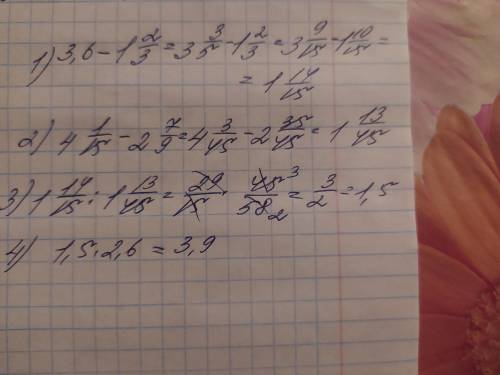 1) 3,6 - 1 2/3 = 3 3/5 - 1 2/3 = 3 9/15 - 1 10/15 =
= 1 14/15
2) 4 1/15 - 2 7/9 = 4 3/45 - 2 35/45 = 1 13/45
3) 1 14/15 : 1 13/45 = 29/15 · 45 3/58 2 = 3/2 = 1,5
4) 1,5 · 2,6 = 3,9